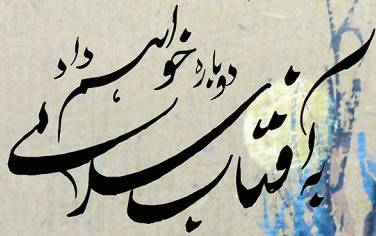 به آفتاب سلامی
دوباره خواهم داد